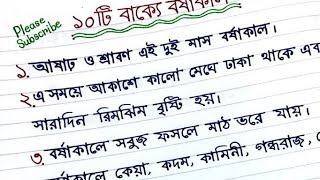 Please Subscribe
১০টি বাক্যে বর্ষাকাল
১. আষাঢ় ও শ্রাবণ এই দুই মাস বর্ষাকাল।
২. এ সময়ে আকাশে কালো মেঘে ঢাকা থাকে এবং
সারাদিন রিমঝিম বৃষ্টি হয়।
৩. বর্ষাকালে সবুজ ফসলে মাঠ ভরে যায়।
বর্ষাকালে কেয়া, কদম, কামিনী, গন্ধরাজ,